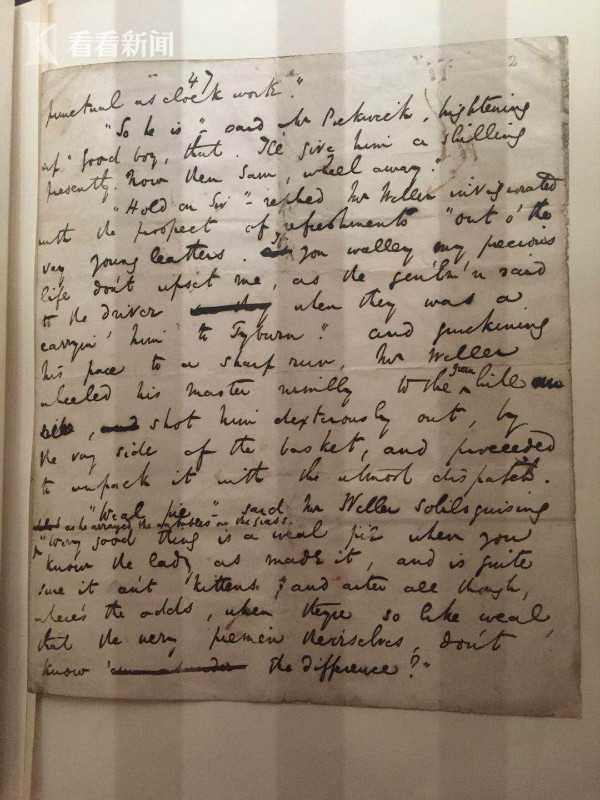 看看新闻
47
2
punctual as clock work."
"So he is", said Mr Pickwick, brightening
up "good boy, that. I'll give him a shilling
presently. Now then Sam, wheel away."
"Hold on Sir" - replied Mr Weller invigorated
with the prospect of refreshments "out o' the
vay young leathers. If you walley my precious
life don't upset me, as the gen'lm'n said
to the driver when they was a
carryin' him to Tyburn." and quickening
his pace to a sharp run, Mr Weller
wheeled his master nimbly to the green hill
, shot him dexterously out, by
the very side of the basket, and proceeded
to unpack it with the utmost dispatch.
"Weal pie", said Mr Weller soliloquising
as he arranged the eatables on the grass.
"Wery good thing is a weal pie when you
know the lady as made it, and is quite
sure it an't kittens; and arter all though,
where's the odds, when they're so like weal,
that the wery piemen theirselves, don't
know the difference?"